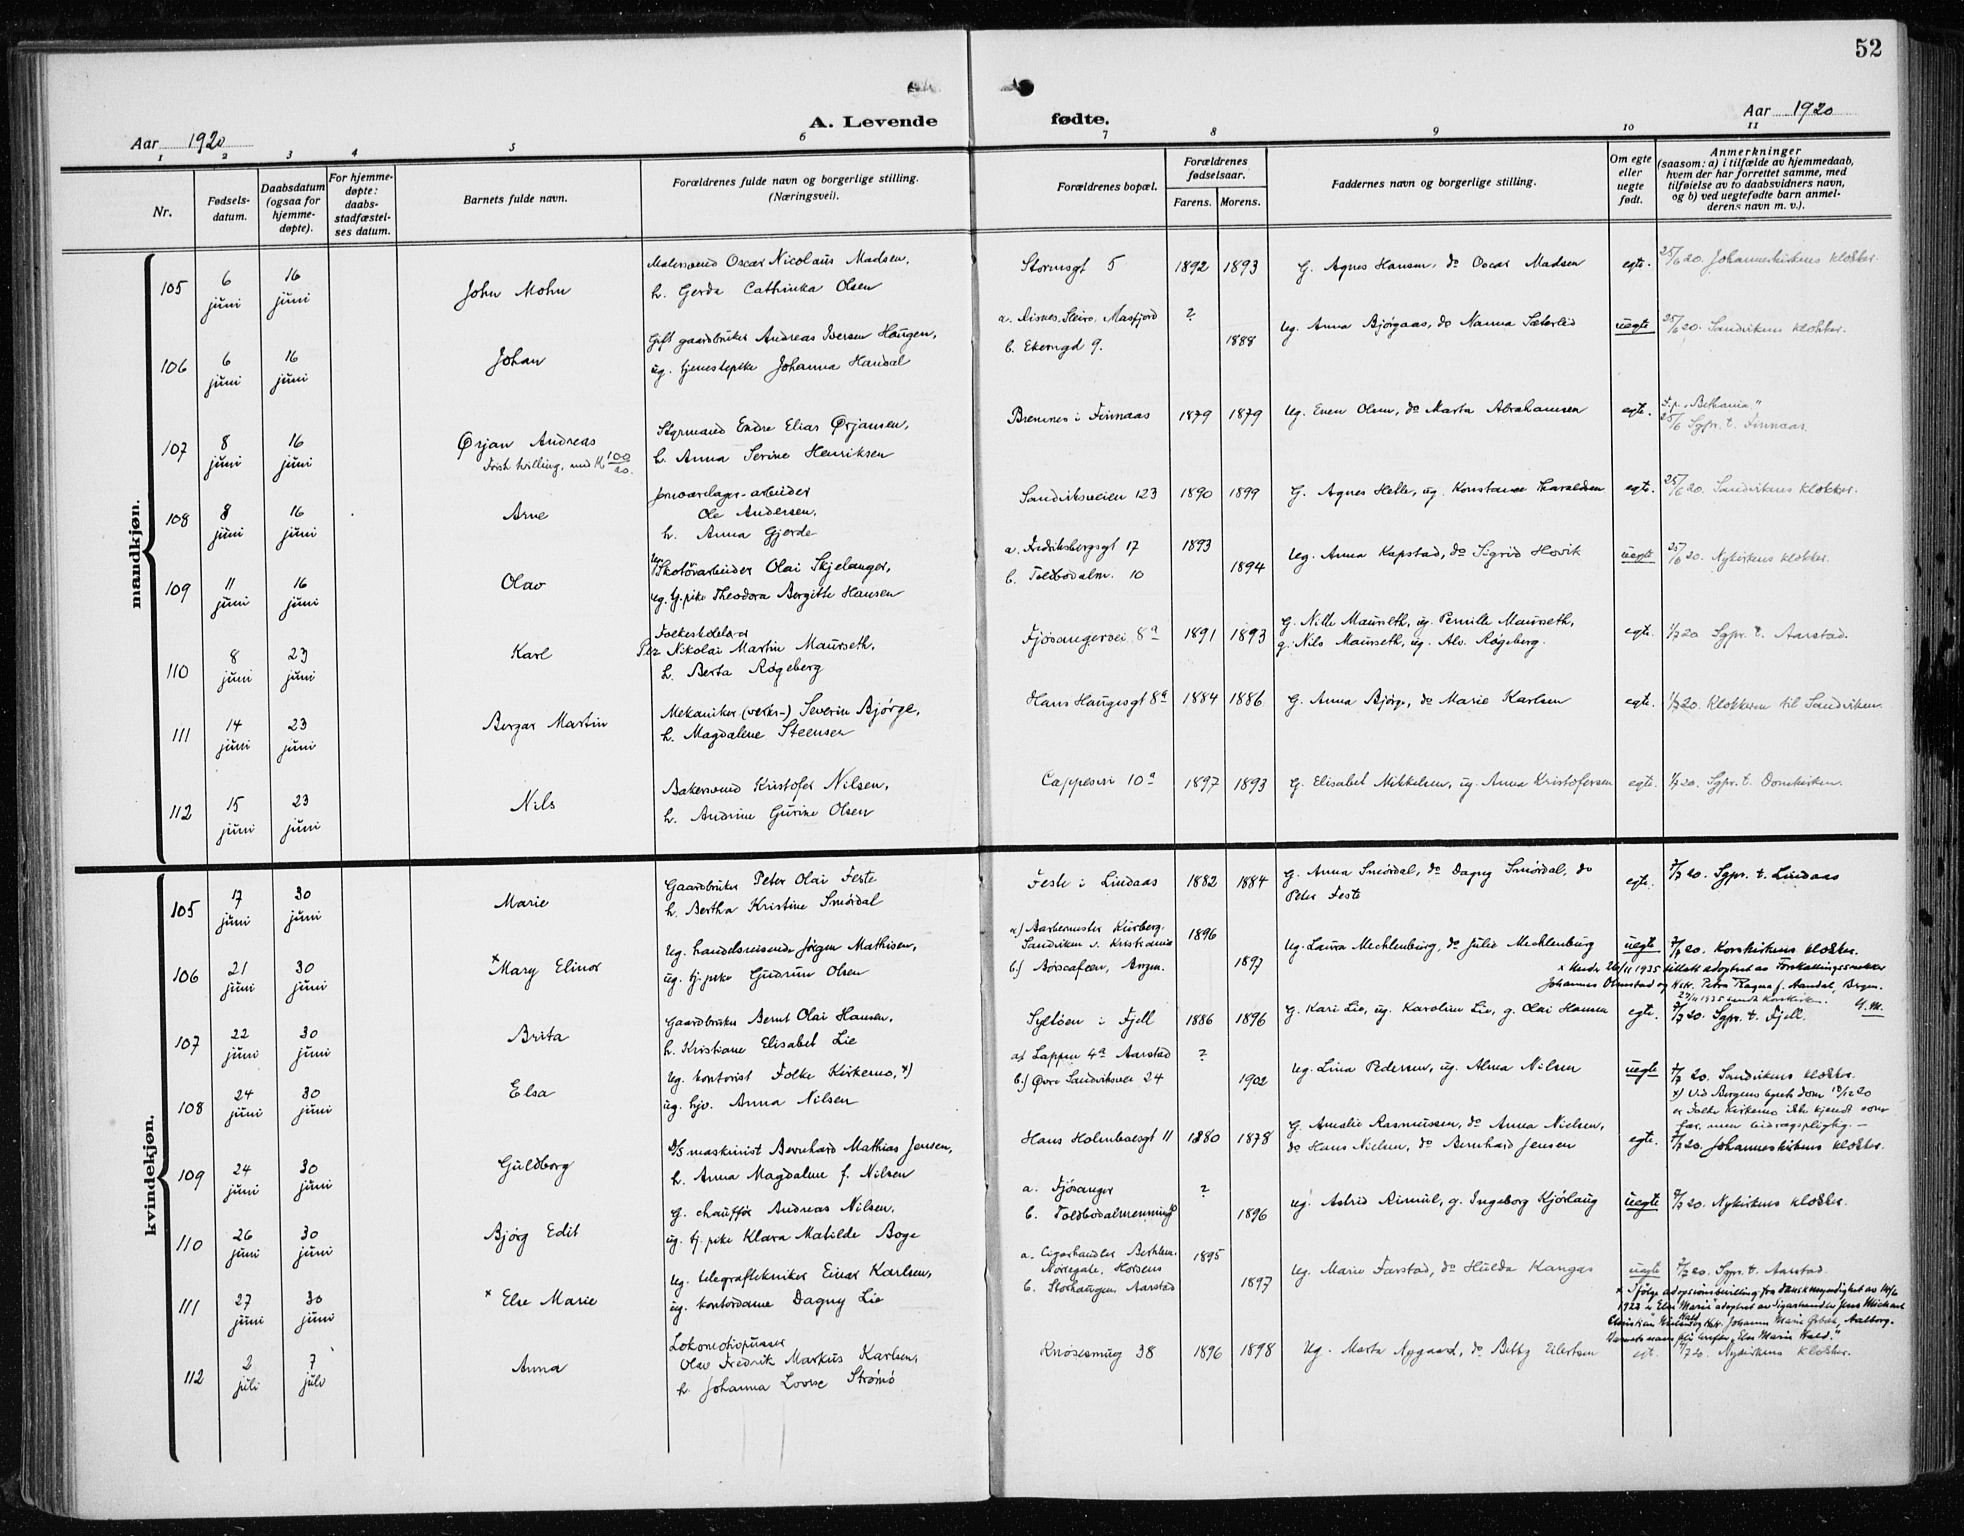 52
A. Levende fødte.
Aar 1920
Aar 1920
1 2 3 4 5 6 7 8 9 10 11
Nr.
Fødsels-
datum.
Daabsdatum
(ogsaa for
hjemme-
døpte).
For hjemme-
døpte:
daabs-
stadfæstel-
ses datum.
Barnets fulde navn.
Forældrenes fulde navn og borgerlige stilling.
(Næringsvei).
Forældrenes bopæl.
Forældrenes
fødselsaar.
Farens. Morens.
Faddernes navn og borgerlige stilling.
Om egte
eller
uegte
født.
Anmerkninger
(saasom: a) i tilfælde av hjemmedaab,
hvem der har forrettet samme, med
tilføielse av to daabsvidners navn,
og b) ved uegtefødte barn anmel-
derens navn m. v.).
mandkjøn.
105 6 juni 16 juni John Mohn
Malersvend Oscar Nicolaus Madsen,
h. Gerda Cathinka Olsen
Stormsgt 5 1892 1893 G. Agnes Hansen, do Oscar Madsen egte. 25/6 20. Johanneskirkens klokker.
106 6 juni 16 juni Johan
Gift gaardbruker Andreas Iversen Haugen,
ug. tjenestepike Johanna Handal
a. Risnes, Sleire, Masfjord ?
b. Ekerngd 9. 1888
Ug. Anna Bjørgaas, do Nanna Sæterlid uegte 25/6 20. Sandvikens klokker.
107 8 juni 16 juni Ørjan Andreas
Først tvilling, med K 100/20.
Styrmand Endre Elias Ørjansen,
h. Anna Serine Henriksen
Bremnes i Finnaas 1879 1879 Ug. Even Olsen, do Marta Abrahamsen egte. F. p. "Bethania"
25/6 Sgpr. t. Finnaas.
108 8 juni 16 juni Arne
Jernvarelager-arbeider
Ole Andersen,
h. Anna Gjerde
Sandviksveien 123 1890 1899 G. Agnes Helle, ug. Konstanse Haraldsen egte. 25/6 20. Sandvikens klokker.
109 11 juni 16 juni Olav
Ug. Skotøiarbeider Olai Skjelanger,
ug. tj. pike Theodora Bergitte Hansen
a. Fredriksbergsgt 17 1893
b. Toldbodalm. 10 1894
Ug. Anna Kapstad, do Sigrid Hovik uegte 25/6 20. Nykirkens klokker.
110 8 juni 23 juni Karl
Folkeskolelærer
Per Nikolai Martin Maurseth,
h. Berta Røgeberg
Fjøsangervei 8a 1891 1893 G. Nille Maurseth, ug. Pernille Maurseth,
g. Nils Maurseth, ug. Alv. Røgeberg. egte. 1/7 20 Sgpr. t. Aarstad.
111 14 juni 23 juni Bergar Martin
Mekaniker (verks-) Severin Bjørge,
h. Magdalene Steensen
Hans Haugesgt 8a 1884 1886 G. Anna Bjørge, do Marie Karlsen egte. 1/7 20. Klokkeren til Sandviken.
112 15 juni 23 juni Nils
Bakersvend Kristofer Nilsen,
h. Andrine Gurine Olsen
Cappesvei 10a 1897 1893 G. Elisabet Mikkelsen, ug. Anna Kristofersen egte. 1/7 20. Sgpr. t. Domkirken.
kvindekjøn.
105 17 juni 30 juni Marie
Gaardbruker Peter Olai Feste
h. Bertha Kristine Smørdal
Feste i Lindaas 1882 1884 G. Anna Smørdal, do Dagny Smørdal, do
Peter Feste egte. 7/7 20. Sgpr. t. Lindaas
106 21 juni 30 juni × Mary Elinor
Ug. handelsreisende Jørgen Mathisen,
ug. tj. pike Gudrun Olsen
a) Aarbermester Kirberg.
Sandviken v. Kristiania 1896
b.) Børscafeen, Bergen. 1897
Ug. Laura Mecklenburg, do Julie Mecklenburg uegte 7/7 20. Korskirkens klokker.
× Under 26/11 1935 tillatt adoptert av Forskallingssnekker
Johannes Olmstad og H. Petra Ragna f. Aandal, Bergen.
27/11 1935 sendt Korskirken. G. M.
107 22 juni 30 juni Brita
Gaardbruker Bernt Olai Hansen,
h. Kristiane Elisabet Lie
Syltøen i Fjell 1886 1896 G. Kari Lie, ug. Karoline Lie, g. Olai Hansen egte. 7/7 20. Sgpr. t. Fjell.
108 24 juni 30 juni Elsa
Ug. kontorist Folke Kirkemo, ×)
ug. hjv. Anna Nilsen
a) Lappen 4a Aarstad ?
b.) Øvre Sandviksvei 24 1902
Ug. Lina Pedersen, ug. Alma Nilsen uegte 7/7 20. Sandvikens klokker.
×) Ved Bergens byrets dom 18/12 20
er Folke Kirkemo ikke kjendt som
far, men bidragspligtig. —
109 24 juni 30 juni Guldborg
D/S maskinist Bernhard Mathias Jensen,
h. Anna Magdalene f. Nilsen
Hans Holmboesgt 11 1880 1878 G. Amalie Rasmussen, do Anna Nielsen,
do Hans Nielsen, do Bernhard Jensen egte. 7/7 20. Johanneskirkens klokker.
110 26 juni 30 juni Bjørg Edit
G. chauffør Andreas Nilsen,
ug. tj. pike Klara Matilde Boge
a. Fjøsanger ?
b. Toldbodalmenning 1896
Ug. Astrid Rimul, g. Ingeborg Kjørlaug uegte 7/7 20. Nykirkens klokker.
111 27 juni 30 juni × Else Marie
Ug. telegraftekniker Einar Karlsen,
ug. kontordame Dagny Lie
a. Cigarhandler Berthlem.
Nørregate, Horsens 1895
b. Storhaugen, Aarstad 1897
Ug. Marie Farstad, do Hulda Kangas uegte 7/7 20. Sgpr. t. Aarstad.
× Ifølge adopsionsbevilling fra dansk myndighet av 14/6
1922 er Else Marie adoptert av Sigarhandler Jens Michael
Christian Hald og Hst. Johanne Marie Aalborg.
Barnets navn blir herefter "Else Marie Hald."
112 2 juli 7 juli Anna
Lokomotivpusser
Olav Fredrik Markus Karlsen,
h. Johanna Lovise Strømø
Knøsesmug 38 1896 1898 Ug. Marta Nygaard, do Betty Eilertsen egt. /7 20. Nykirkens klokker.